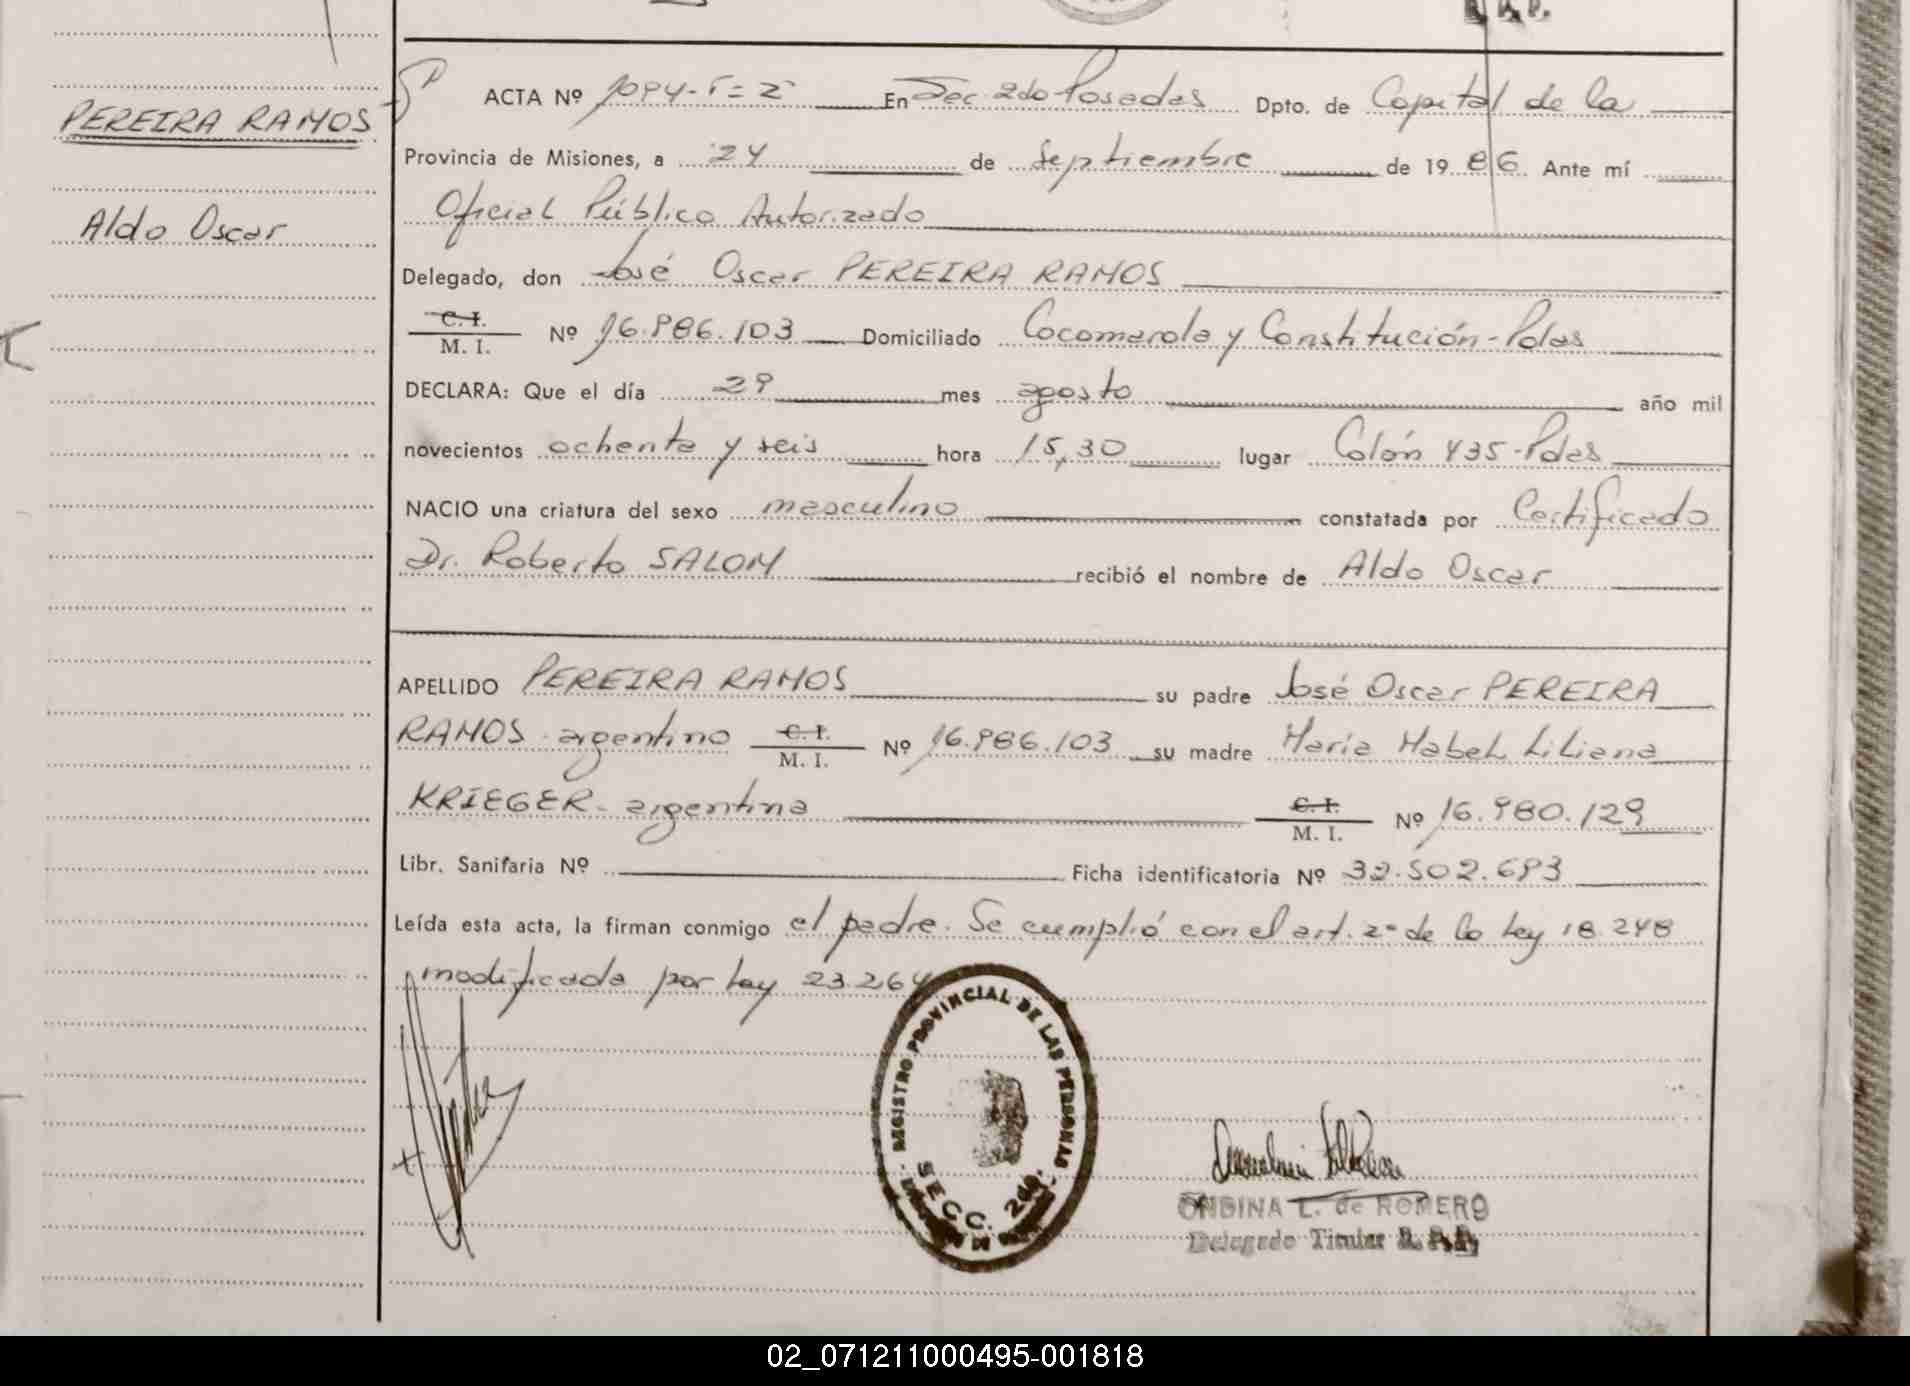 PEREIRA RAMOS
Aldo Oscar
ACTA Nº 1094-T=2 En Sec 2do Posadas Dpto. de Capital de la
Provincia de Misiones, a 24 de Septiembre de 1986. Ante mí
Oficial Público Autorizado
Delegado, don José Oscar PEREIRA RAMOS
C. I.
M. I. Nº 16.986.103 Domiciliado Cocomarola y Constitución-Pdas
DECLARA: Que el día 29 mes agosto año mil
novecientos ochenta y seis hora 15,30 lugar Colón 435-Pdas
NACIO una criatura del sexo masculino constatada por Certificado
Dr. Roberto SALOM recibió el nombre de Aldo Oscar
APELLIDO PEREIRA RAMOS su padre José Oscar PEREIRA
RAMOS-argentino C. I. M. I. Nº 16.986.103 su madre María Mabel Liliana
KRIEGER-argentina C. I. M. I. Nº 16.980.129
Libr. Sanifaria Nº Ficha identificatoria Nº 32.502.693
Leída esta acta, la firman conmigo el padre. Se cumplió con el art. 2º de la Ley 18.248
modificada por Ley 23.264
REGISTRO PROVINCIAL DE LAS PERSONAS
SECC. 2da.
ONDINA L. de ROMERO
Delegado Titular R. P. P.
02_071211000495-001818